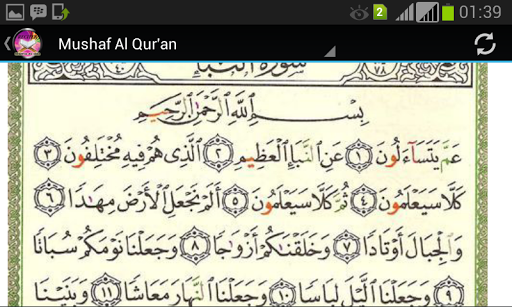 2 01:39
Mushaf Al Qur'an
سورة النبإ
بِسْمِ اللَّهِ الرَّحْمَٰنِ الرَّحِيمِ
عَمَّ يَتَسَآءَلُونَ ١ عَنِ النَّبَإِ الْعَظِيمِ ٢ الَّذِى هُمْ فِيهِ مُخْتَلِفُونَ ٣
كَلَّا سَيَعْلَمُونَ ٤ ثُمَّ كَلَّا سَيَعْلَمُونَ ٥ أَلَمْ نَجْعَلِ الْأَرْضَ مِهَٰدًا ٦
وَالْجِبَالَ أَوْتَادًا ٧ وَخَلَقْنَٰكُمْ أَزْوَٰجًا ٨ وَجَعَلْنَا نَوْمَكُمْ سُبَاتًا
٩ وَجَعَلْنَا الَّيْلَ لِبَاسًا ١٠ وَجَعَلْنَا النَّهَارَ مَعَاشًا ١١ وَبَنَيْنَا